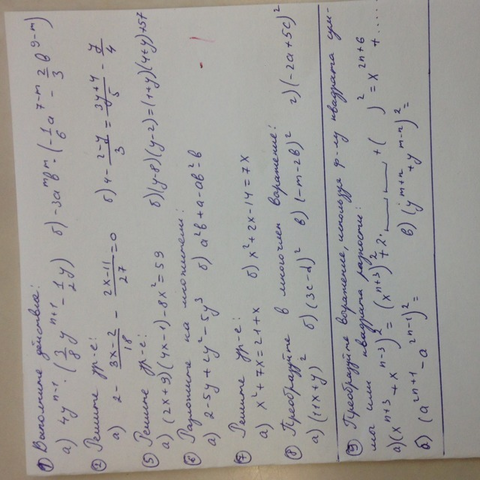 ① Выполните действия:
а) 4y^{n-1} · (3/8 y^{n+1} - 1/2 y) б) -3a^m b^m · (-1/6 a^{7-m} - 2/3 b^{9-m})
② Решите ур-е:
а) 2 - (3x-2)/18 - (2x-11)/27 = 0 б) 4 - (2-y)/3 = (3y+4)/5 - y/4
⑤ Решите ур-е:
а) (2x+9)(4x-1)-8x²=59 б) (y-8)(y-2)=(1+y)(4+y)+57
⑥ Разложите на множители:
а) 2-5y+2y²-5y³ б) a²b+a-ab²-b
⑦ Решите ур-е:
а) x²+7x=21+x б) x²+2x-14=7x
⑧ Преобразуйте в многочлен выражение:
а) (11x+y)² б) (3c-d)² в) (-m-2b)² г) (-2a+5c)²
⑨ Преобразуйте выражение, используя ф-лу квадрата сум-
ма или квадрата разности:
а) (x^{n+3} + x^{n-3})² = (x^{n+3})² + 2·___ ___ + ( )² = x^{2n+6} + ....
б) (a^{2n+1} - a^{2n-1})² = в) (y^{m+n} + y^{m-n})² =